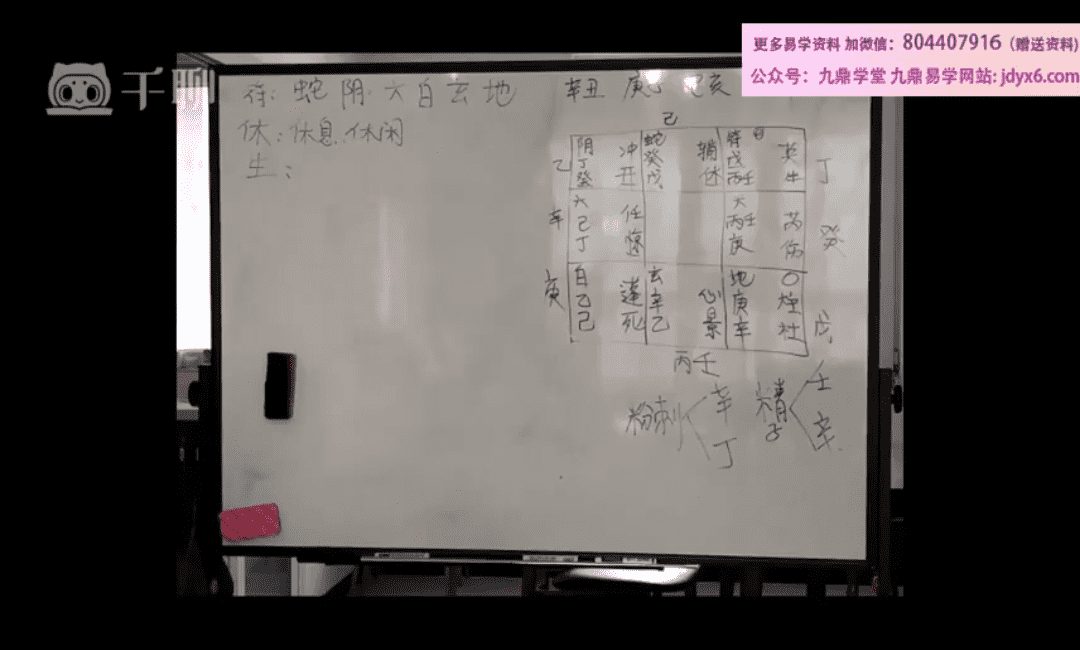 更多易学资料 加微信: 804407916 (赠送资料)
公众号: 九鼎学堂 九鼎易学网站: jdyx6.com
千聊
符: 蛇 阴 六 白 玄 地
辛丑 庚子 亥
休: 休息、休闲
生:
己
阴 冲 蛇 辅 符 英
丁 开 癸 休 戊 生
癸 戊 丙壬
乙 丁
六 任 六 芮
己 惊 丙壬 伤
丁 庚
辛 癸
白 蓬 玄 心 地 〇
乙 死 辛 景 庚 柱
己 乙 辛 杜
庚 戊
丙壬
粉刺 辛 丁
精子 壬 辛